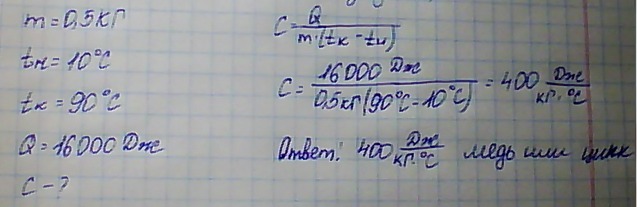 m = 0,5 кг
tн = 10°C
tк = 90°C
Q = 16000 Дж
C - ?
C = Q / m·(tк - tн)
C = 16000 Дж / 0,5кг (90°C - 10°C) = 400 Дж / кг·°C
Ответ: 400 Дж / кг·°C медь или цинк